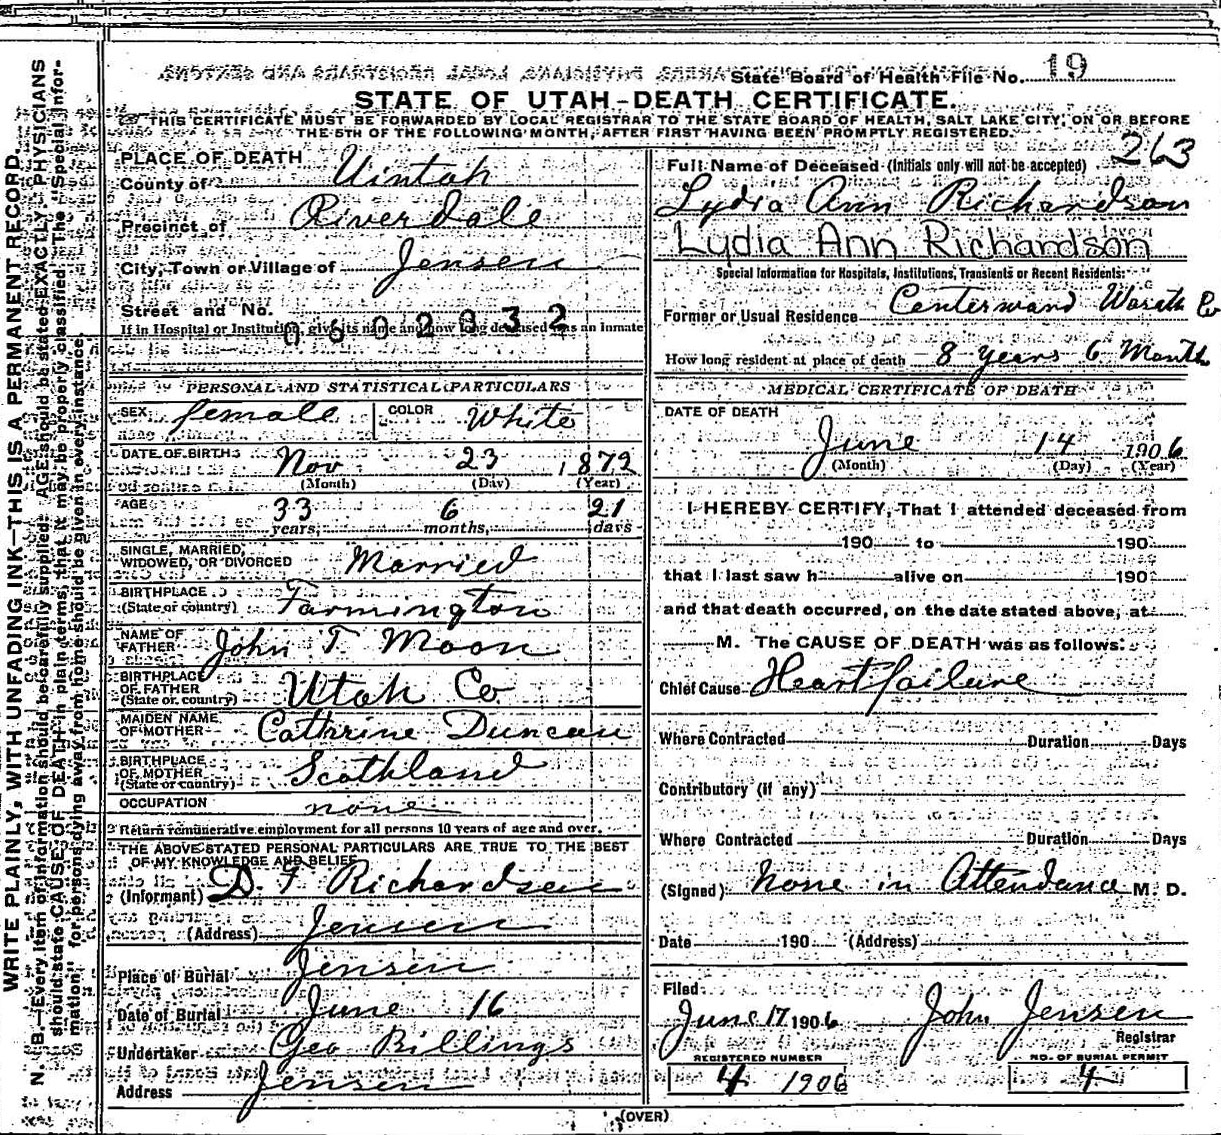 State Board of Health File No. 19
STATE OF UTAH-DEATH CERTIFICATE.
THIS CERTIFICATE MUST BE FORWARDED BY LOCAL REGISTRAR TO THE STATE BOARD OF HEALTH, SALT LAKE CITY, ON OR BEFORE
THE 5TH OF THE FOLLOWING MONTH, AFTER FIRST HAVING BEEN PROMPTLY REGISTERED.
WRITE PLAINLY, WITH UNFADING INK—THIS IS A PERMANENT RECORD.
N. B.—Every item of information should be carefully supplied. AGE should be stated EXACTLY. PHYSICIANS
should state CAUSE OF DEATH in plain terms, that it may be properly classified. The "Special Infor-
mation" for persons dying away from home should be given in every instance.
PLACE OF DEATH
County of Uintah
Precinct of Riverdale
City, Town or Village of Jensen
Street and No.
If in Hospital or Institution, give its name and how long deceased was an inmate
0602032
PERSONAL AND STATISTICAL PARTICULARS
SEX female COLOR White
DATE OF BIRTH Nov 23 1872
(Month) (Day) (Year)
AGE 33 6 21
years, months, days
SINGLE, MARRIED,
WIDOWED, OR DIVORCED Married
BIRTHPLACE
(State or country) Farmington
NAME OF
FATHER John T. Moon
BIRTHPLACE
OF FATHER
(State or country) Utah Co
MAIDEN NAME
OF MOTHER Cathrine Duncan
BIRTHPLACE
OF MOTHER
(State or country) Scothland
OCCUPATION none
Return remunerative employment for all persons 10 years of age and over.
THE ABOVE STATED PERSONAL PARTICULARS ARE TRUE TO THE BEST
OF MY KNOWLEDGE AND BELIEF
(Informant) D. F Richardsen
(Address) Jensen
Place of Burial Jensen
Date of Burial June 16
Undertaker Geo Billings
Address Jensen
263
Full Name of Deceased (Initials only will not be accepted)
Lydia Ann Richardson
Lydia Ann Richardson
Special Information for Hospitals, Institutions, Transients or Recent Residents:
Former or Usual Residence Centerward Wasath Co
How long resident at place of death 8 years 6 Month
MEDICAL CERTIFICATE OF DEATH
DATE OF DEATH
June 14 1906
(Month) (Day) (Year)
I HEREBY CERTIFY, That I attended deceased from
190 to 190
that I last saw h alive on 190
and that death occurred, on the date stated above, at
M. The CAUSE OF DEATH was as follows:
Chief Cause Heart failure
Where Contracted Duration Days
Contributory (if any)
Where Contracted Duration Days
(Signed) None in Attendance M. D.
Date 190 (Address)
Filed
June 17 1906 John Jensen
Registrar
REGISTERED NUMBER NO. OF BURIAL PERMIT
4 1906 4
(OVER)